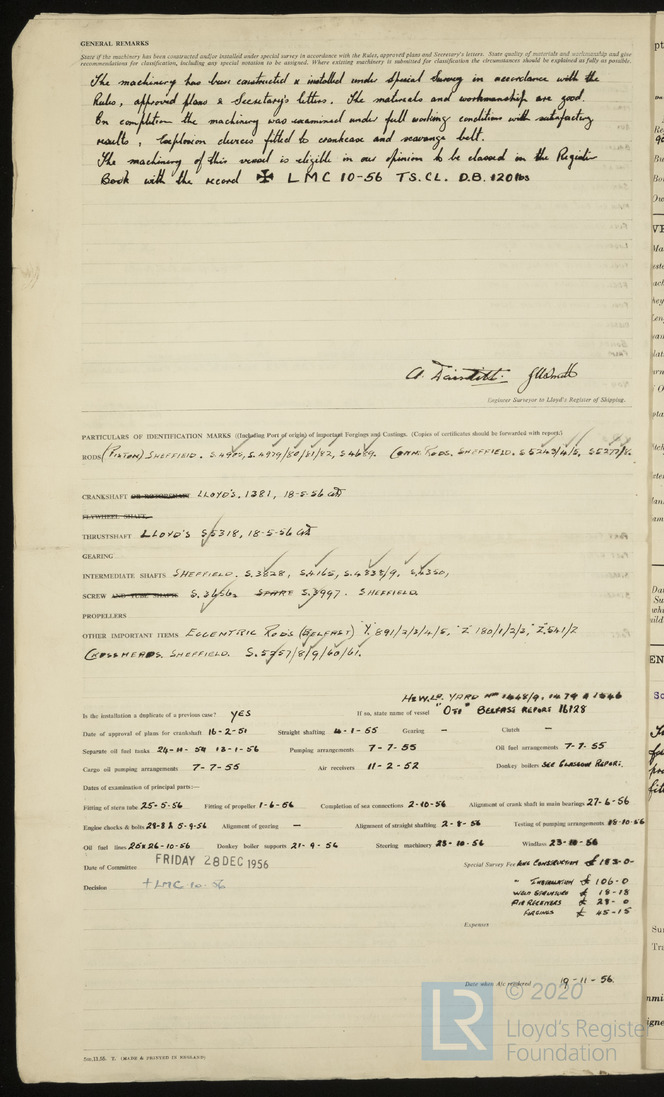 GENERAL REMARKS
State if the machinery has been constructed and/or installed under special survey in accordance with the Rules, approved plans and Secretary's letters. State quality of materials and workmanship and give
recommendations for classification, including any special notation to be assigned. Where existing machinery is submitted for classification the circumstances should be explained as fully as possible.
The machinery has been constructed & installed under Special Survey in accordance with the
Rules, approved plans & Secretary's letters. The materials and workmanship are good.
On completion the machinery was examined under full working conditions with satisfactory
results, Explosion devices fitted to crankcase and scavenge belt.
The machinery of this vessel is eligible in our opinion to be classed in the Register
Book with the record ✠ LMC 10-56 TS.CL. D.B. 120 lbs
Engineer Surveyor to Lloyd's Register of Shipping.
PARTICULARS OF IDENTIFICATION MARKS (Including Port of origin) of Important Forgings and Castings. (Copies of certificates should be forwarded with report.)
RODS (PISTON) SHEFFIELD. S.4979/80/81/82, S.4689. CONN. RODS. SHEFFIELD. S.5243/4/5,
CRANKSHAFT OR ROTORSHAFT LLOYD'S. 1381, 18-5-56
FLYWHEEL SHAFT
THRUSTSHAFT LLOYD'S S.5318, 18-5-56
GEARING
INTERMEDIATE SHAFTS SHEFFIELD. S.3828, S.4165, S.4838/9, S.4350,
SCREW AND TUBE SHAFTS SPARE S.3997. SHEFFIELD
PROPELLERS
OTHER IMPORTANT ITEMS ECCENTRIC RODS (BELFAST) Y.891/2/3/4/5, Z 180/1/2/3, Z.541/2
CROSSHEADS. SHEFFIELD. S.5757/8/9/60/61.
H&W.LD. YARD Nos 1448/9, 1479 & 1546
Is the installation a duplicate of a previous case? YES If so, state name of vessel BELFAST REPORT 16128
Date of approval of plans for crankshaft 16-2-51 Straight shafting 4-1-55 Gearing — Clutch —
Separate oil fuel tanks 24-11-54 13-1-56 Pumping arrangements 7-7-55 Oil fuel arrangements 7-7-55
Cargo oil pumping arrangements 7-7-55 Air receivers 11-2-52 Donkey boilers SEE GLASGOW REPORT.
Dates of examination of principal parts:—
Fitting of stern tube 25-5-56 Fitting of propeller 1-6-56 Completion of sea connections 2-10-56 Alignment of crank shaft in main bearings 27-6-56
Engine chocks & bolts 28-8 & 5-9-56 Alignment of gearing — Alignment of straight shafting 2-8-56 Testing of pumping arrangements 18-10-56
Oil fuel lines 25&26-10-56 Donkey boiler supports 21-9-56 Steering machinery 23-10-56 Windlass 23-10-56
Date of Committee FRIDAY 28 DEC 1956 Special Survey Fee ENG CONSTRUCTION £ 183-0-
Decision + LMC 10.56
" INSTALLATION £ 106-0
WELD STRUCTURE £ 18-18
AIR RECEIVERS £ 28-0
FORGINGS £ 45-15
Expenses
Date when A/c rendered 19-11-56.
© 2020
LR
Lloyd's Register
Foundation
5m,11,55. T. (MADE & PRINTED IN ENGLAND)